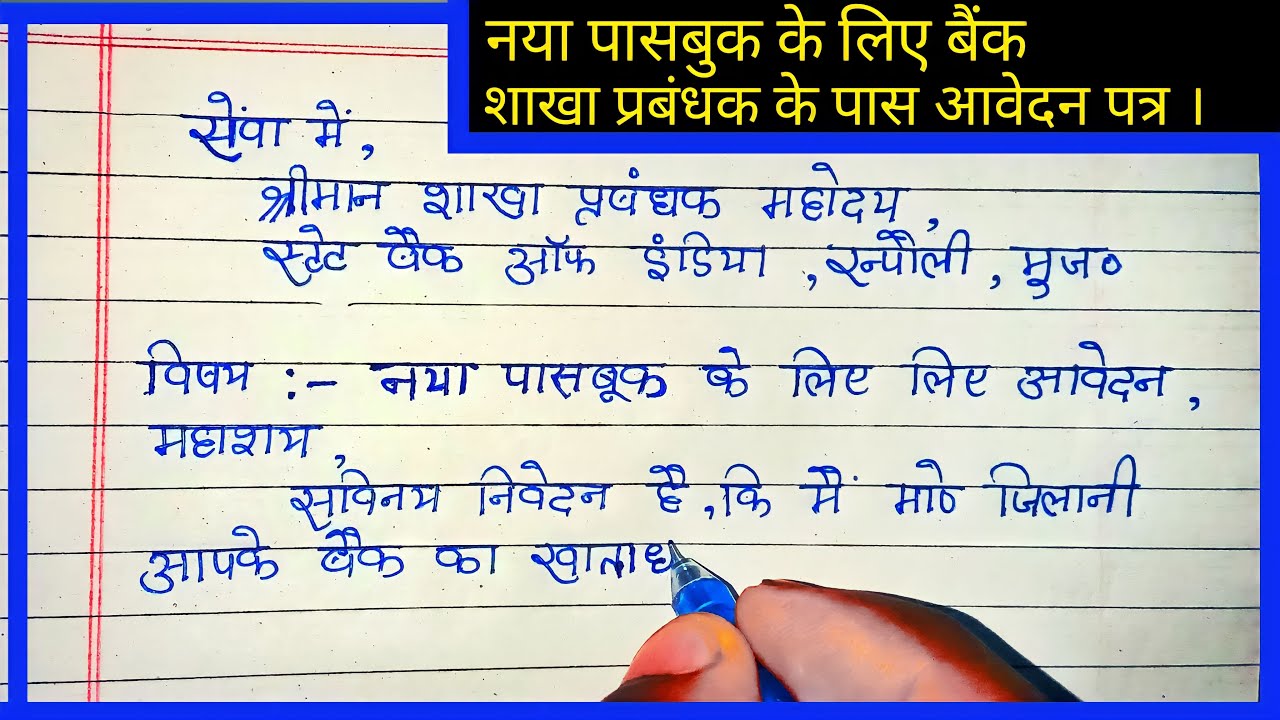 नया पासबुक के लिए बैंक
शाखा प्रबंधक के पास आवेदन पत्र ।
सेंवा में,
श्रीमान शाखा प्रबंधक महोदय,
स्टेट बैंक ऑफ इंडिया , रन्पौली , मुज०
विषय :- नया पासबूक के लिए लिए आवेदन ,
महाशय ,
सविनय निवेदन है , कि मैं मो० जिलानी
आपके बैंक का खाताध